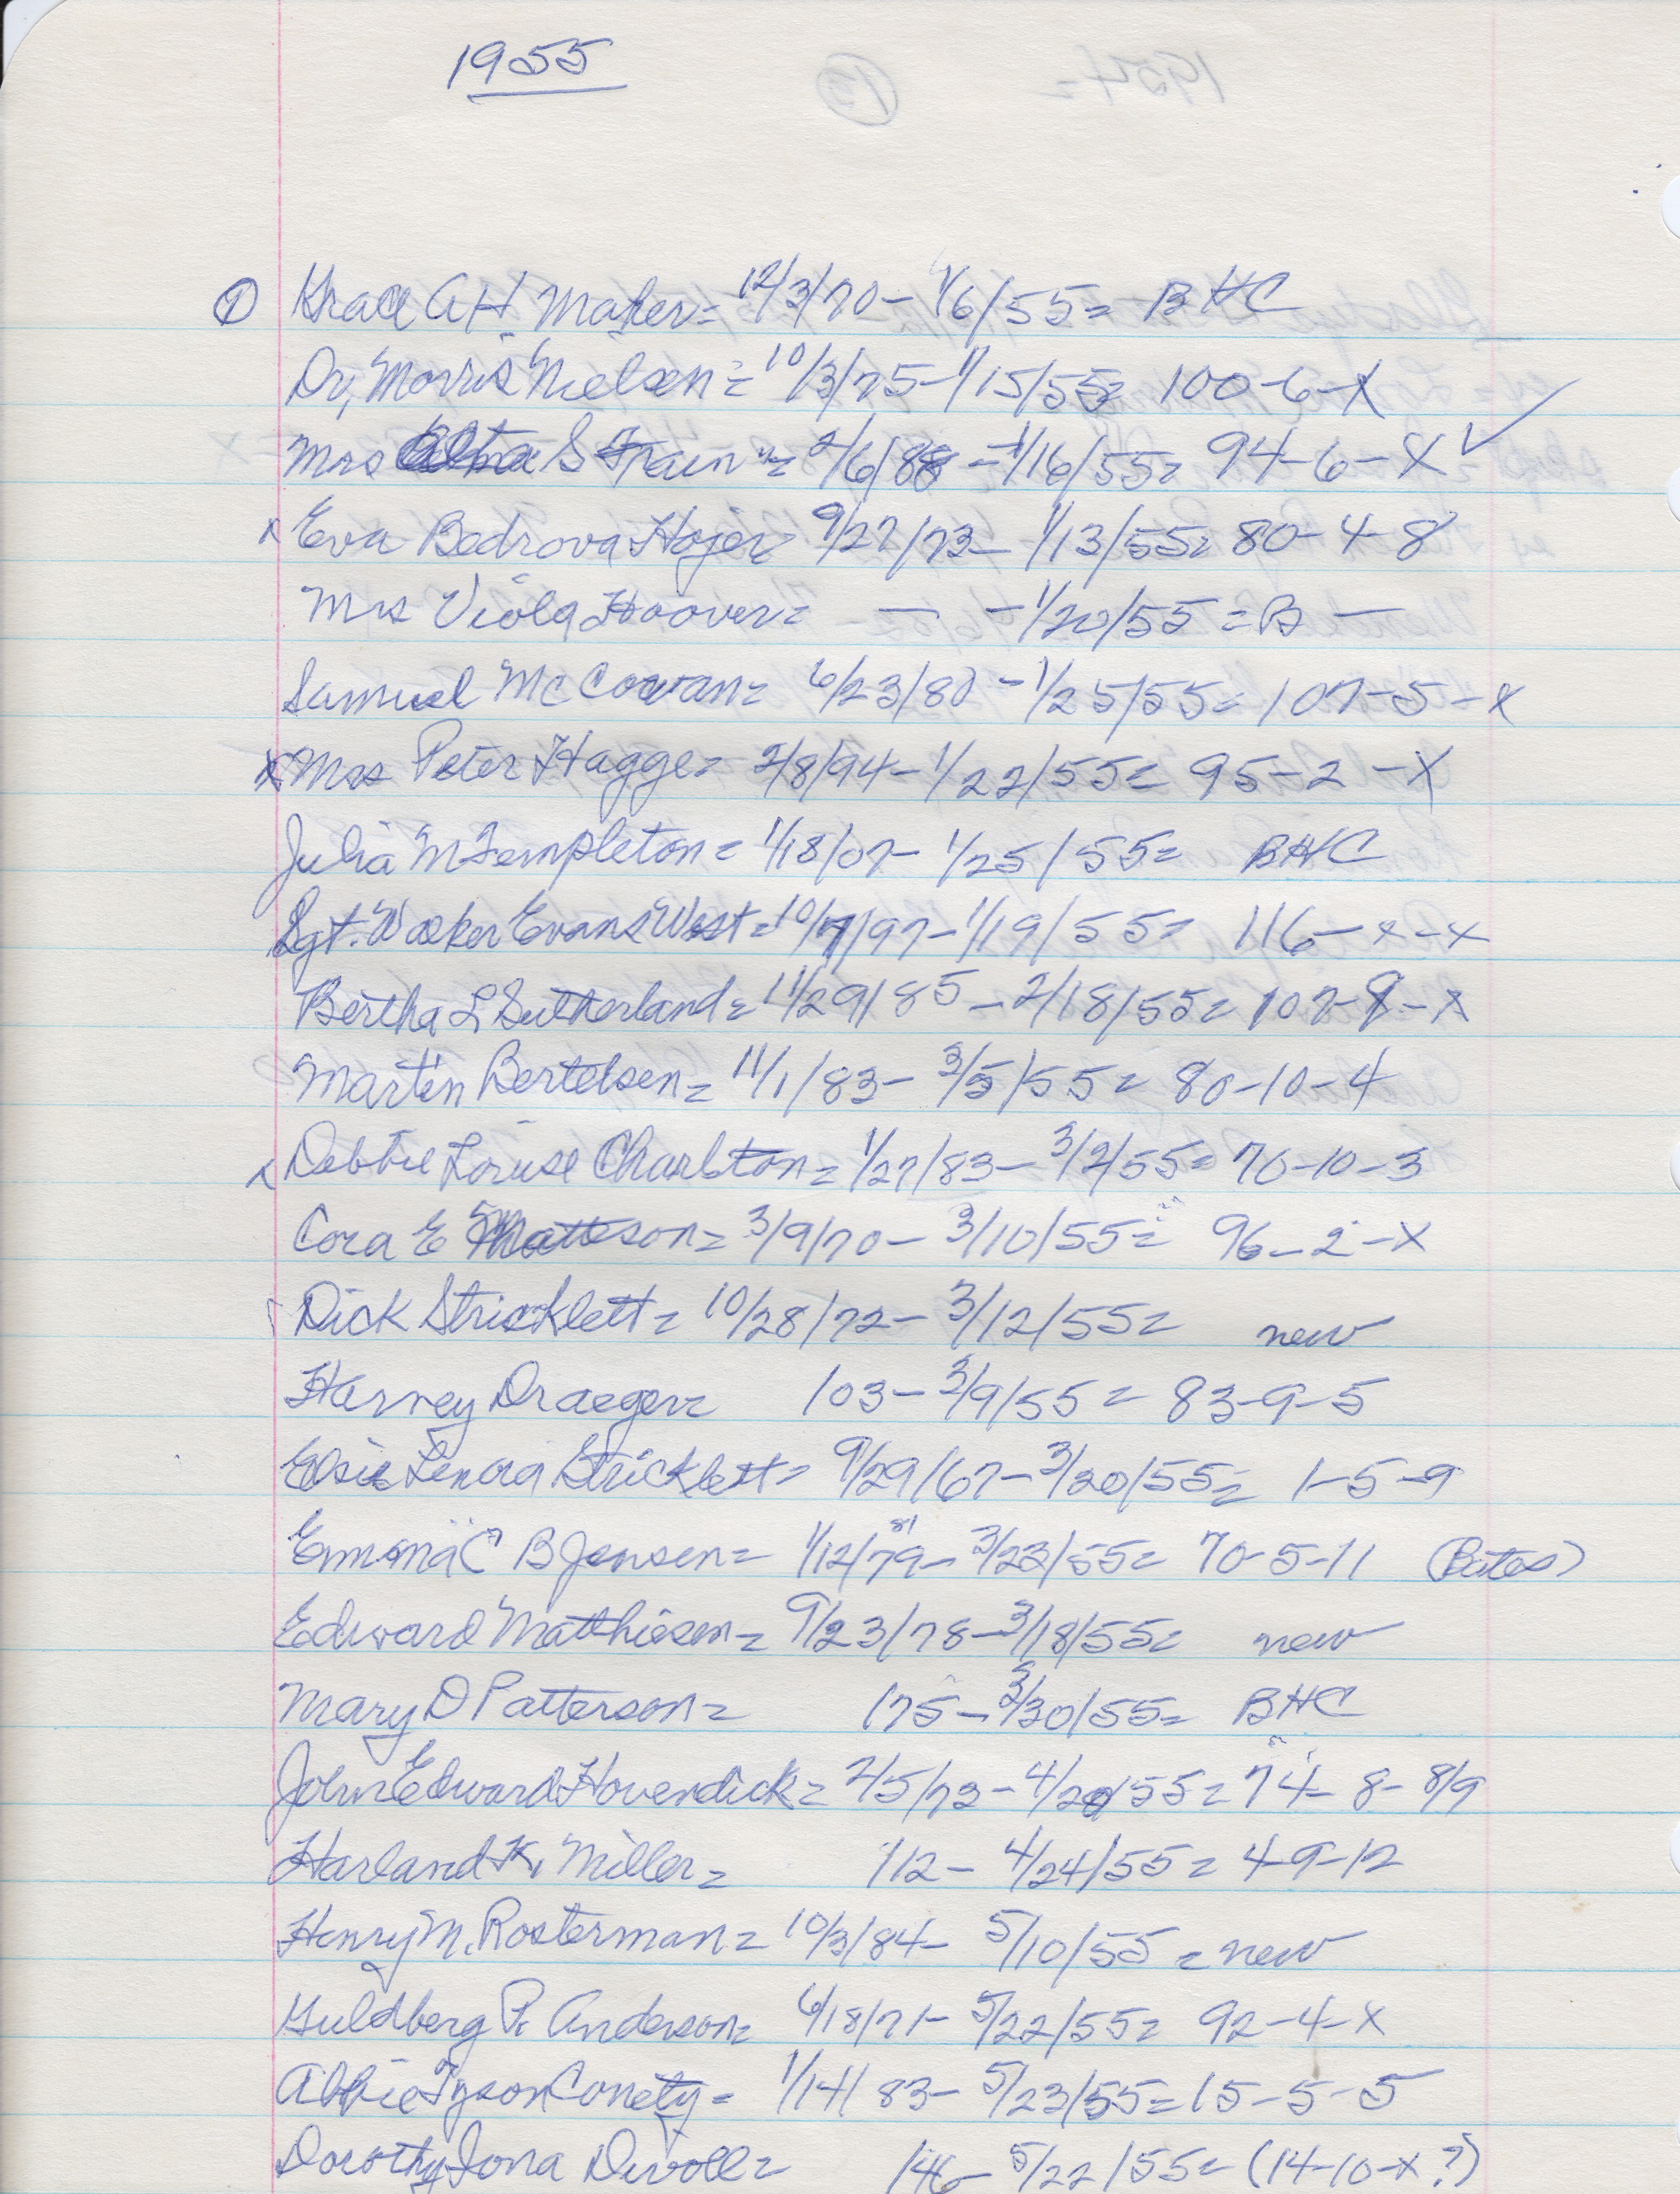 1955
① Grace A H Maher = 12/3/70 - 1/6/55 = BHC
Dr, Morris Nielsen = 10/3/75 - 1/15/55 = 100-6-X
Mrs Alma S Frain = 2/6/88 - 1/16/55 = 94-6-X ✓
x Eva Bedrova Hojer = 9/27/73 - 1/13/55 = 80-4-8
Mrs Viola Hoover = — - 1/20/55 = B —
Samuel McCowan = 6/23/80 - 1/25/55 = 107-5-X
x Mrs Peter Hagge = 2/8/94 - 1/22/55 = 95-2-X
Julia M Templeton = 1/18/07 - 1/25/55 = BHC
Sgt. Evans West = 10/7/97 - 1/19/55 = 116-x-x
Bertha L Sutherland = 11/29/85 - 2/18/55 = 107-9-X
Martin Bertelsen = 11/1/83 - 3/5/55 = 80-10-4
x Debbie Louise Charlton = 1/27/83 - 3/2/55 = 70-10-3
Cora E Matteson = 3/9/70 - 3/10/55 = 96-2-X
Dick Stricklett = 10/28/72 - 3/12/55 = new
Harvey Draeger = 103 - 3/9/55 = 83-9-5
Elsie Lenora Stricklett = 9/29/67 - 3/20/55 = 1-5-9
Emma C B Jensen = 1/12/79 - 3/23/55 = 70-5-11 (Bates)
81
Edward Matthiesen = 9/23/78 - 3/18/55 = new
Mary D Patterson = 175 - 3/30/55 = BHC
John Edward Hovendick = 2/5/73 - 4/20/55 = 74-8-8/9
Harland K. Miller = 112 - 4/24/55 = 4-9-12
Henry M. Rosterman = 10/3/84 - 5/10/55 = new
Guldberg P. Anderson = 6/18/71 - 5/22/55 = 92-4-X
Abbie Tyson Conety = 1/14/83 - 5/23/55 = 15-5-5
Dorothy Iona Divoll = 146 - 5/22/55 = (14-10-x?)